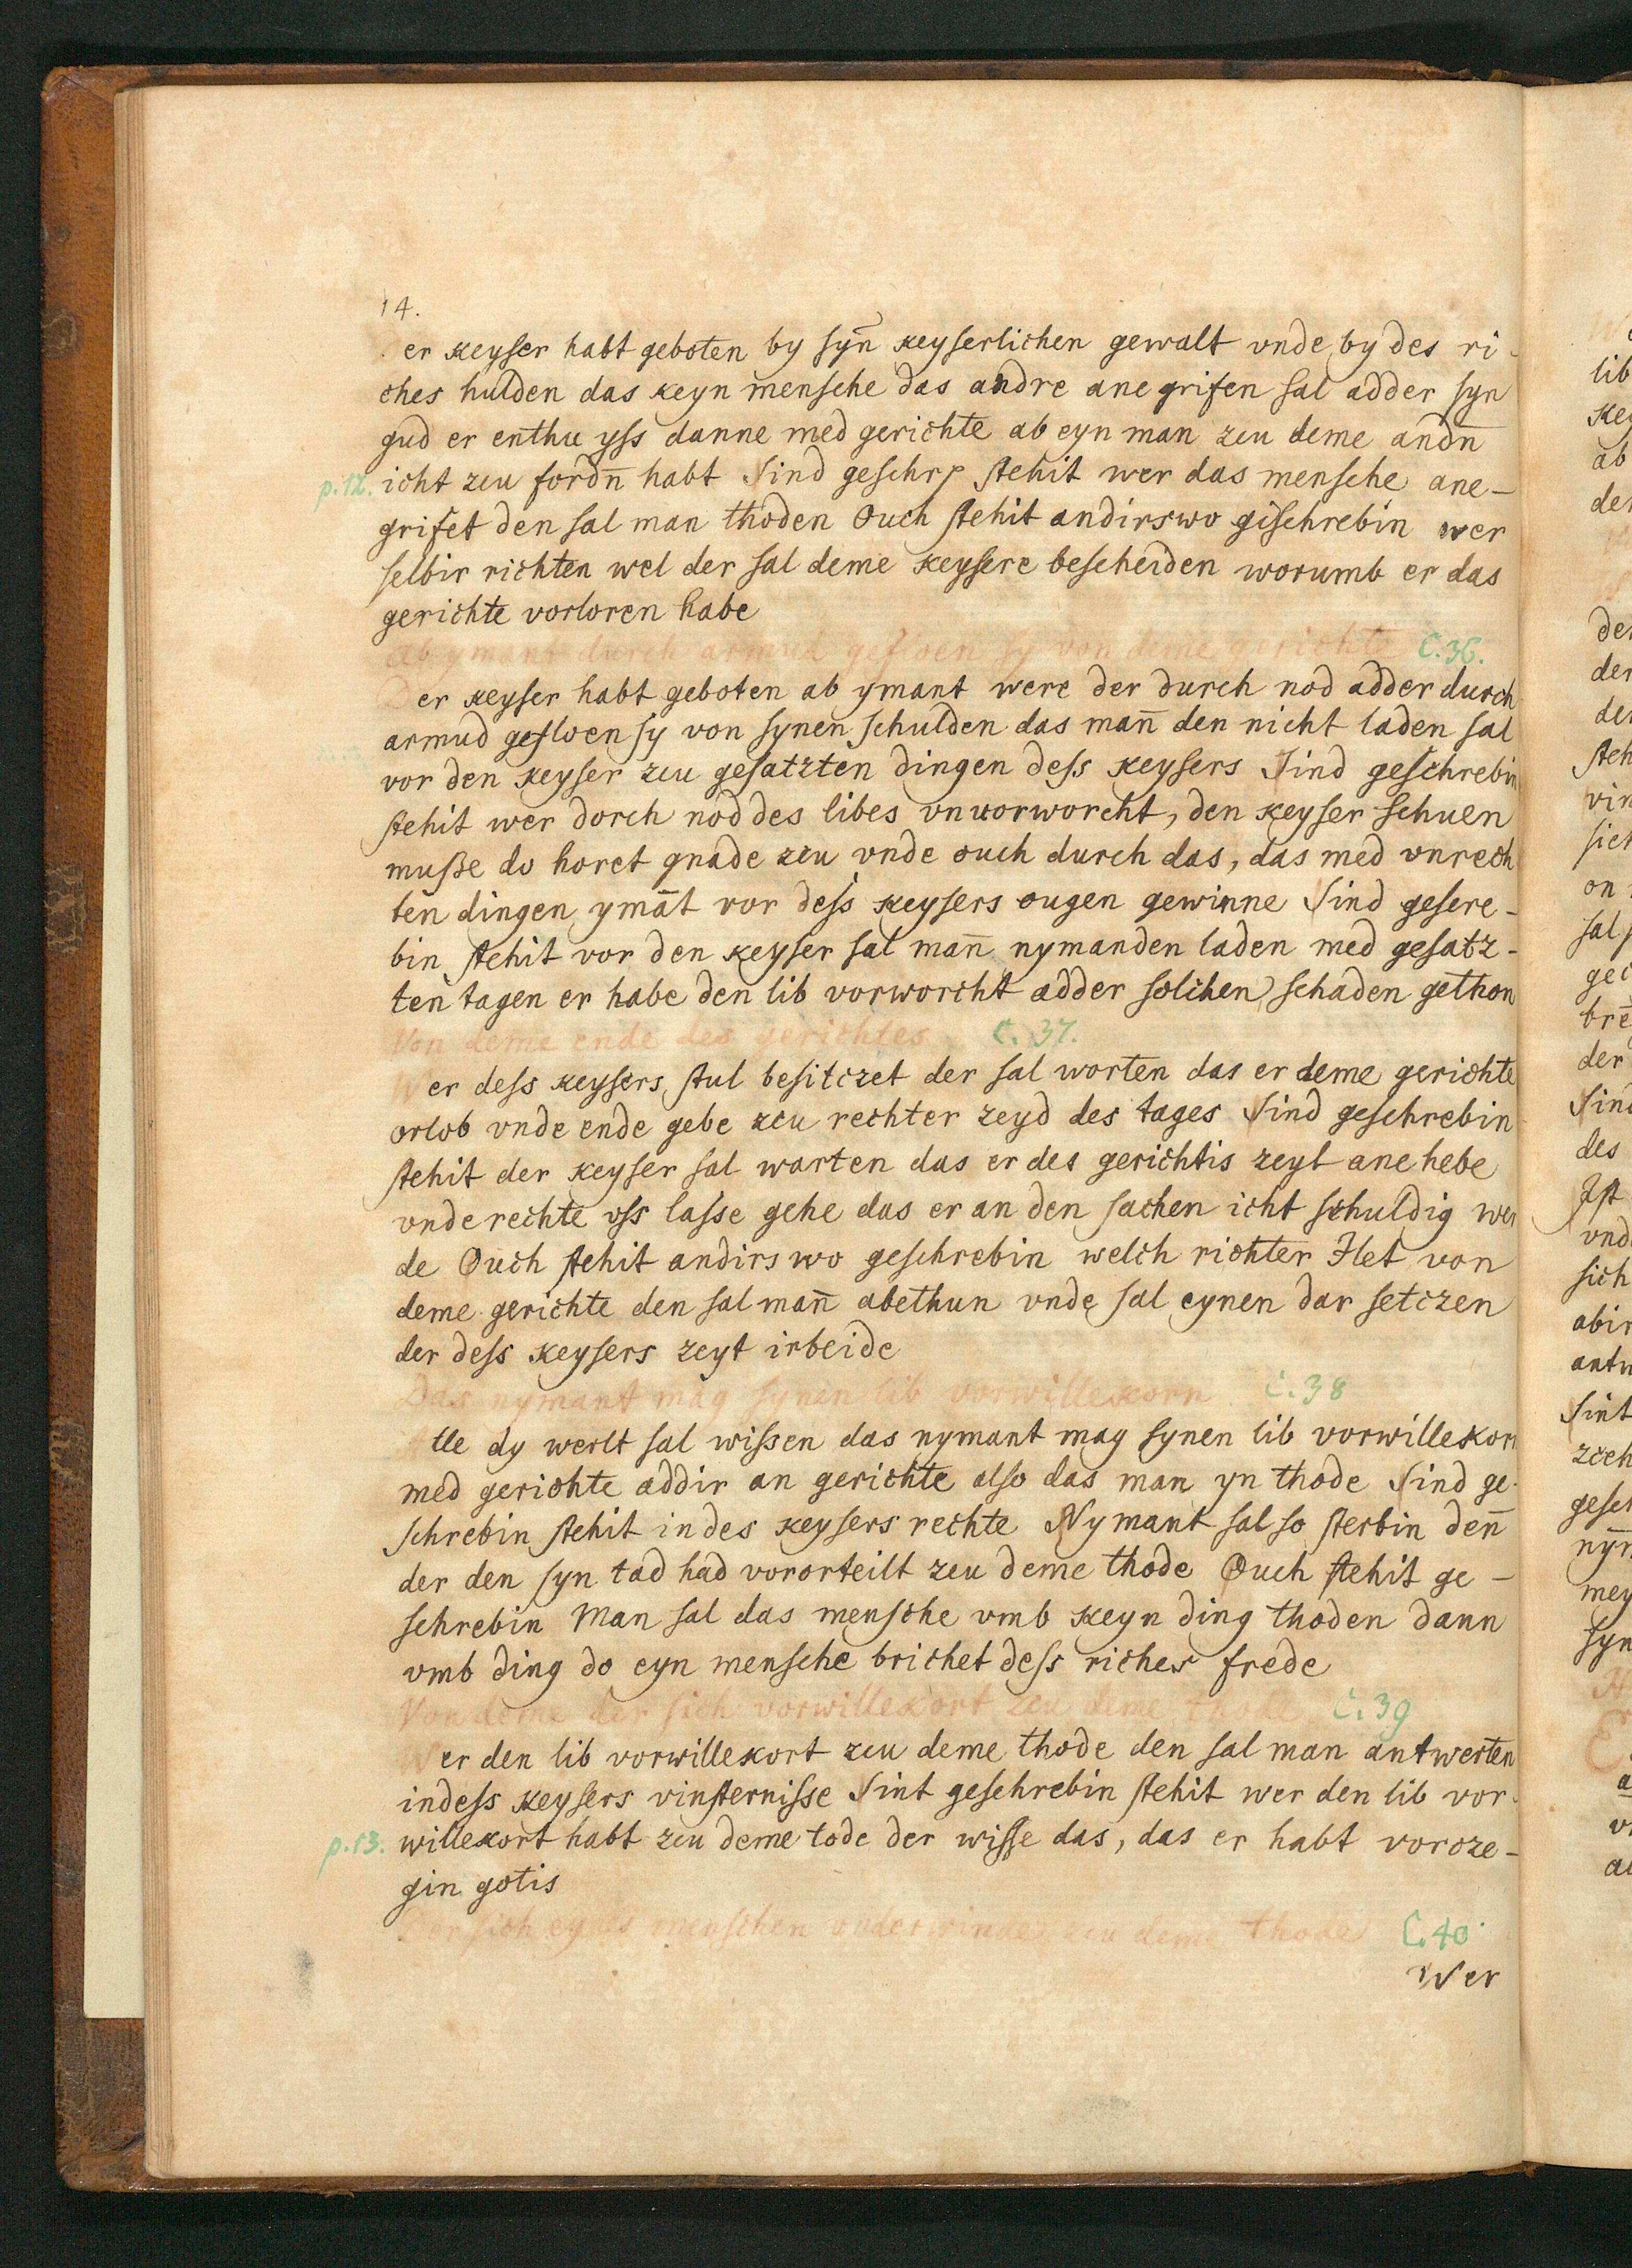 14.
Der keyser habt geboten by syn̄ keyserlichen gewalt vnde by des ri-
ches hulden das keyn mensche das andre ane grifen sal adder syn
gud er enthu yss danne med gerichte ab eyn man zcu deme andn̄
p.12. icht zcu fordn̄ habt Sind geschrp stehit wer das mensche ane-
grifet den sal man thoden Ouch stehit andirswo gischrebin wer
selbir richten wel der sal deme keysere bescheiden worumb er das
gerichte vorloren habe
Ab ymant durch armud gefloen sy von deme gerichte C. 36.
Der keyser habt geboten ab ymant were der durch nod adder durch
armud gefloen sy von synen schulden das man̄ den nicht laden sal
vor den keyser zcu gesatzten dingen dess keysers Sind geschrebin
stehit wer dorch nod des libes vnuorworcht, den keyser schuen
muße do horet gnade zcu vnde ouch durch das, das med vnrech
ten dingen ymāt vor dess keysers ougen gewinne Sind gesere-
bin stehit vor den keyser sal man̄ nymanden laden med gesatz-
ten tagen er habe den lib vorworcht adder solchen schaden gethon
Von deme ende des gerichtes C. 37.
Wer dess keysers stul besitczet der sal worten das er deme gerichte
orlob vnde ende gebe zcu rechter zeyd des tages Sind geschrebin
stehit der keyser sal warten das er des gerichtis zeyt ane hebe
vnde rechte vss lasse gehe das er an den sachen icht schuldig wer
de Ouch stehit andirs wo geschrebin welch richter Ilet von
deme gerichte den sal man̄ abethun vnde sal eynen dar setczen
der dess keysers zeyt irbeide
Das nymant mag synen lib vorwillekorn C. 38
Alle dy werlt sal wissen das nymant mag synen lib vorwillekorn
med gerichte addir an gerichte also das man yn thode Sind ge-
schrebin stehit in des keysers rechte Nymant sal so sterbin den̄
der den syn tad had vororteilt zcu deme thode Ouch stehit ge-
schrebin Man sal das mensche vmb keyn ding thoden dann
vmb ding do eyn mensche brichet dess riches frede
Von deme der sich vorwillekort zcu deme thode C. 39
Wer den lib vorwillekort zcu deme thode den sal man antwerten
indess keysers vinsternisse Sint geschrebin stehit wer den lib vor-
p.13. willekort habt zcu deme tode der wisse das, das er habt vorcze-
gin gotis
Der sich eynes menschen vnderwindet zcu deme thode C. 40
Wer